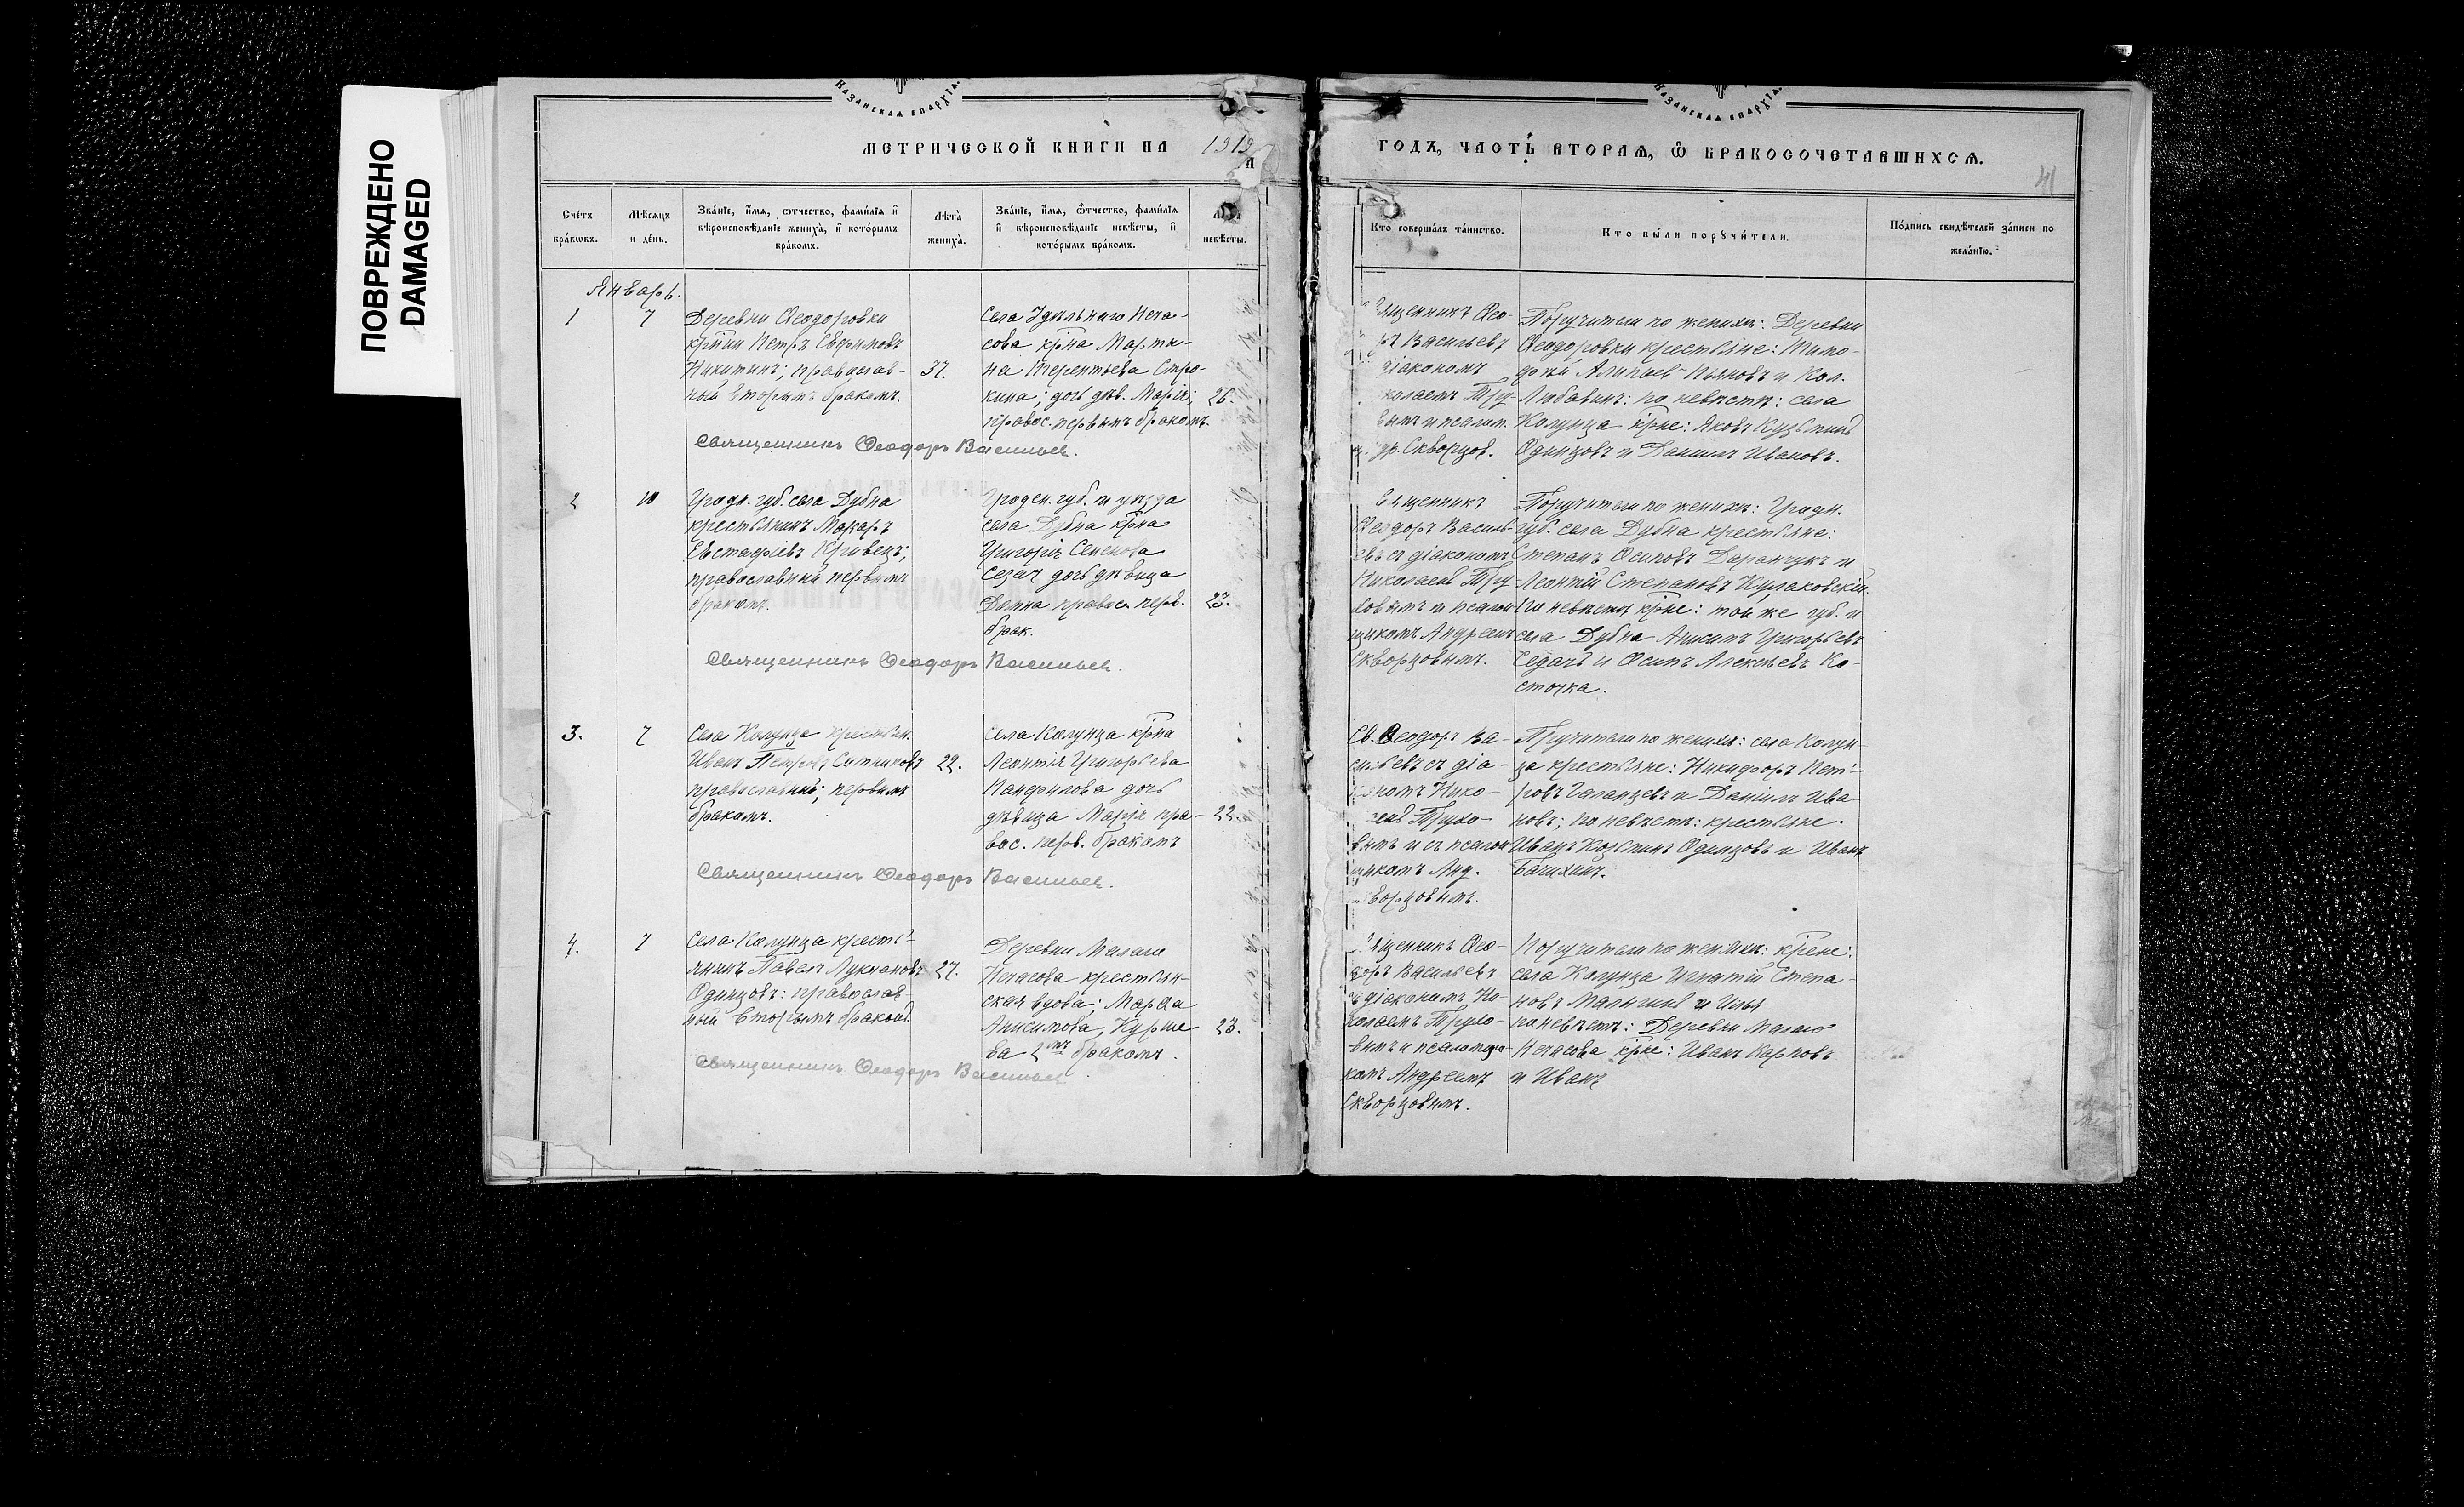 ПОВРЕЖДЕНО
DAMAGED
КАЗАНСКАѦ ЕПАРХІА.
КАЗАНСКАѦ ЕПАРХІА.
МЕТРИЧЕСКОЙ КНИГИ НА 1919
ГОДЪ, ЧАСТЬ ВТОРАѦ, Ѽ БРАКОСОЧЕТАВШИХСѦ.
41
Счётъ бра́кѡвъ.
Мѣ́сѧцъ и де́нь.
Зва́нїе, и́мѧ, ѻтчество, фамѝлїѧ и҆ вѣроисповѣ́данїе жениха̀, и҆ кото́рымъ бра́комъ.
Лѣта̀ жениха̀.
Зва́нїе, и́мѧ, ѻтчество, фамѝлїѧ и҆ вѣроисповѣ́данїе невѣ́сты, и҆ кото́рымъ бра́комъ.
невѣ́сты.
Кто соверша́лъ та́инство.
Кто бы́ли порꙋчи́тели.
По́дпись свидѣ́телей за́писи по жела́нїю.
Январь.
1
7
Деревни Ѳеодоровки
кр̃нин Петръ Евфимовъ
Никитинъ; православ-
ный вторымъ бракомъ.
37.
Села Удѣльнаго Неча-
сова кр̃на Марти-
на Терентьева Стро-
кина; дочь дѣв. Марія;
правос. первымъ бракомъ.
26.
Священникъ Ѳеодоръ Васильев.
щенникъ Ѳео-
ръ Васильевъ
діакономъ
колаемъ Тру-
вымъ и псалом.
др. Скворцов.
Поручители по женихѣ: Деревни
Ѳеодоровки крестьяне: Тимо-
Алипіев Пьяновъ и Кол.
Любавинъ: по невѣстѣ: села
Колунца кр̃не: Яковъ Кузьминъ
Одинцовъ и Даниилъ Ивановъ.
2
10
Гродн. губ. села Дубна
крестьянинъ Макаръ
Евстафіевъ Кривецъ;
православный первымъ
бракомъ.
Гроден. губ. и уѣзда
села Дубна кр̃на
Григорія Семенова
Седач дочь дѣвица
Домна правос. перв.
брак.
23.
Священникъ Ѳеодоръ Васильев.
щенникъ
Ѳеодоръ Василь-
евъ съ діакономъ
Николаевъ Тру-
ховымъ и псалом-
щикомъ Андреемъ
Скворцовымъ.
Поручители по женихѣ: Гродн.
губ. села Дубна крестьяне:
Степанъ Осиповъ Даранчукъ и
Леонтій Степановъ Кулаковскій.
По невѣстѣ кр̃не: той же губ. и
села Дубна Анисимъ Григорьевъ
Седачъ и Осипъ Алексѣевъ Ко-
сточка.
3.
7
Села Колунца крестьян.
Иванъ Петровъ Ситниковъ
православный; первымъ
бракомъ.
22.
Села Колунца кр̃на
Леонтія Григорьева
Панфилова дочь
дѣвица Марія пра-
вос. перв. бракомъ
22.
Священникъ Ѳеодоръ Васильев.
Св. Ѳеодоръ Ва-
сильевъ съ діа-
кономъ Нико-
Трухо-
вымъ и съ псалом
щикомъ Анд.
ворцовымъ.
Поручители по женихѣ: села Колун-
ца крестьяне: Никифоръ Пет-
ровъ Галанцевъ и Даніилъ Ива-
новъ; по невѣстѣ: крестьяне.
Иванъ Козьминъ Одинцовъ и Иванъ
Бачихинъ.
4.
7
Села Колунца кресть-
янинъ Павелъ Лукьяновъ
Одинцовъ: православ-
ный вторымъ бракомъ.
27.
Деревни Малаго
Нечасова крестьян-
ская вдова; Марѳа
Анисимова, Курше-
ва 2мъ бракомъ.
23.
Священникъ Ѳеодоръ Васильев
щенникъ Ѳео-
доръ Васильевъ
съ діакономъ Ни-
колаемъ Трухо-
вымъ и псаломщи-
комъ Андреемъ
Скворцовымъ.
Поручители по женихѣ: кр̃не:
села Колунца Игнатій Степа-
новъ Малышевъ и Илья
по невѣстѣ: Деревни Малаго
Нечасова кр̃не: Иванъ Карповъ
и Иванъ